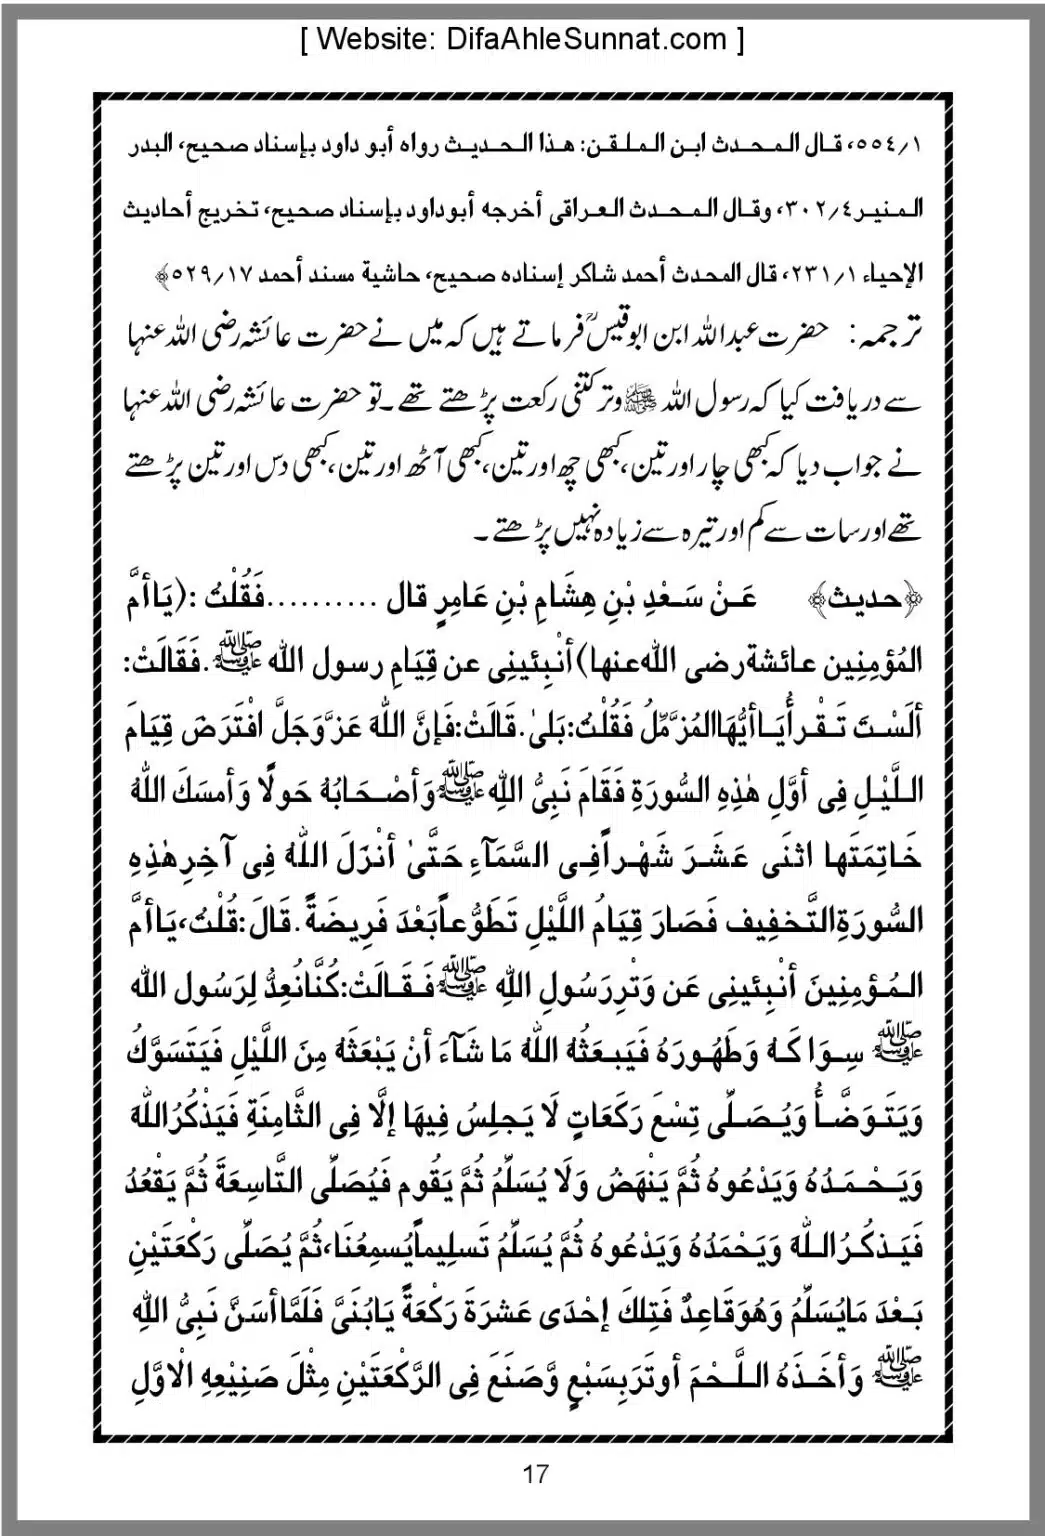 [ Website: DifaAhleSunnat.com ]
۱/٥٥٤، قال المحدث ابن الملقن: هذا الحديث رواه أبو داود بإسناد صحيح، البدر
المنير ٤/٣٠٢، وقال المحدث العراقى أخرجه أبوداود بإسناد صحيح، تخريج أحاديث
الإحياء ١/٢٣١، قال المحدث أحمد شاكر إسناده صحيح، حاشية مسند أحمد ١٧/٥٢٩﴾
ترجمہ: حضرت عبداللہ ابن ابوقیسؒ فرماتے ہیں کہ میں نے حضرت عائشہ رضی اللہ عنہا
سے دریافت کیا کہ رسول اللہ ﷺ وتر کتنی رکعت پڑھتے تھے۔ تو حضرت عائشہ رضی اللہ عنہا
نے جواب دیا کہ کبھی چار اور تین، کبھی چھ اور تین، کبھی آٹھ اور تین، کبھی دس اور تین پڑھتے
تھے اور سات سے کم اور تیرہ سے زیادہ نہیں پڑھتے ۔
﴿حديث﴾ عَنْ سَعْدِ بْنِ هِشَامِ بْنِ عَامِرٍ قال ..........فَقُلْتُ :(يَاأمَّ
المُؤمِنِين عائشة رضى الله عنها)أنْبِئينِى عن قِيَامِ رسول الله ﷺ.فَقَالَتْ:
ألَسْتَ تَقْرأُيَاأيُّهَاالمُزَّمِّلُ فَقُلْتُ:بَلىٰ.قَالَتْ:فَإنَّ اللهَ عَزَّوَجَلَّ افْتَرَضَ قِيَامَ
اللَّيْلِ فِى أوَّلِ هٰذِهِ السُّورَةِ فَقَامَ نَبِىُّ اللهِ ﷺ وَأصْحَابُهُ حَولًا وَأمسَكَ اللهُ
خَاتِمَتَها اثنَى عَشَرَ شَهْراًفِى السَّمَآءِ حَتَّىٰ أنْزَلَ اللهُ فِى آخِرِهٰذِهِ
السُّورَةِالتَّخفِيف فَصَارَ قِيَامُ اللَّيْلِ تَطَوُّعاًبَعْدَ فَرِيضَةً.قَالَ:قُلْتُ،يَاأمَّ
المُؤمِنِينَ أنْبِئينِى عَن وَتْرِرَسُولِ اللهِ ﷺ فَقَالَتْ:كُنَّانُعِدُّ لِرَسُول الله
ﷺ سِوَاكَهُ وَطَهُورَهُ فَيَبعَثُهُ اللهُ مَا شَآءَ أنْ يَبْعَثَهُ مِنَ اللَّيْلِ فَيَتَسَوَّكُ
وَيَتَوَضَّأُ وَيُصَلِّى تِسْعَ رَكَعَاتٍ لَا يَجلِسُ فِيهَا إلَّا فِى الثَّامِنَةِ فَيَذْكُرُاللهَ
وَيَحْمَدُهُ وَيَدْعُوهُ ثُمَّ يَنْهَضُ وَلَا يُسَلِّمُ ثُمَّ يَقُوم فَيُصَلِّى التَّاسِعَةَ ثُمَّ يَقْعُدُ
فَيَذكُرُاللهَ وَيَحْمَدُهُ وَيَدْعُوهُ ثُمَّ يُسَلِّمُ تَسلِيماًيُسمِعُنَا،ثُمَّ يُصَلِّى رَكْعَتَيْنِ
بَعْدَ مَايُسَلِّمُ وَهُوَقَاعِدٌ فَتِلكَ إحْدَى عَشرَةَ رَكْعَةً يَابُنَىَّ فَلَمَّاأسَنَّ نَبِىُّ اللهِ
ﷺ وَأخَذَهُ اللَّحْمَ أوتَرَبِسَبْعٍ وَّصَنَعَ فِى الرَّكْعَتَيْنِ مِثْلَ صَنِيْعِهِ الْاوَّلِ
17